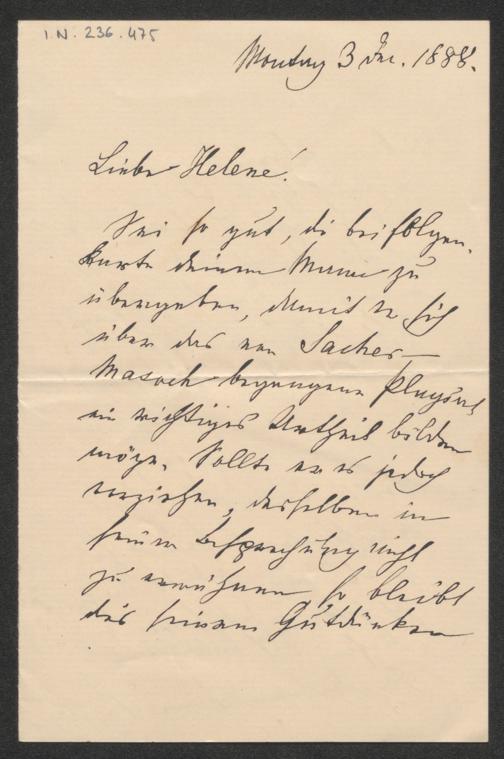 I.N. 236.475
Montag 3 Dec. 1888.
Liebe Helene!
Sei so gut, die beifolgen.
Karte deinem Manne zu
übergeben, damit er sich
über das von Sacher-
Masoch begangene Plagiat
ein richtiges Urtheil bilden
möge. Sollte er es jedoch
vorziehen, desselben in
seiner Besprechung nicht
zu erwähnen so bleibt
dies seinem Gutdünken